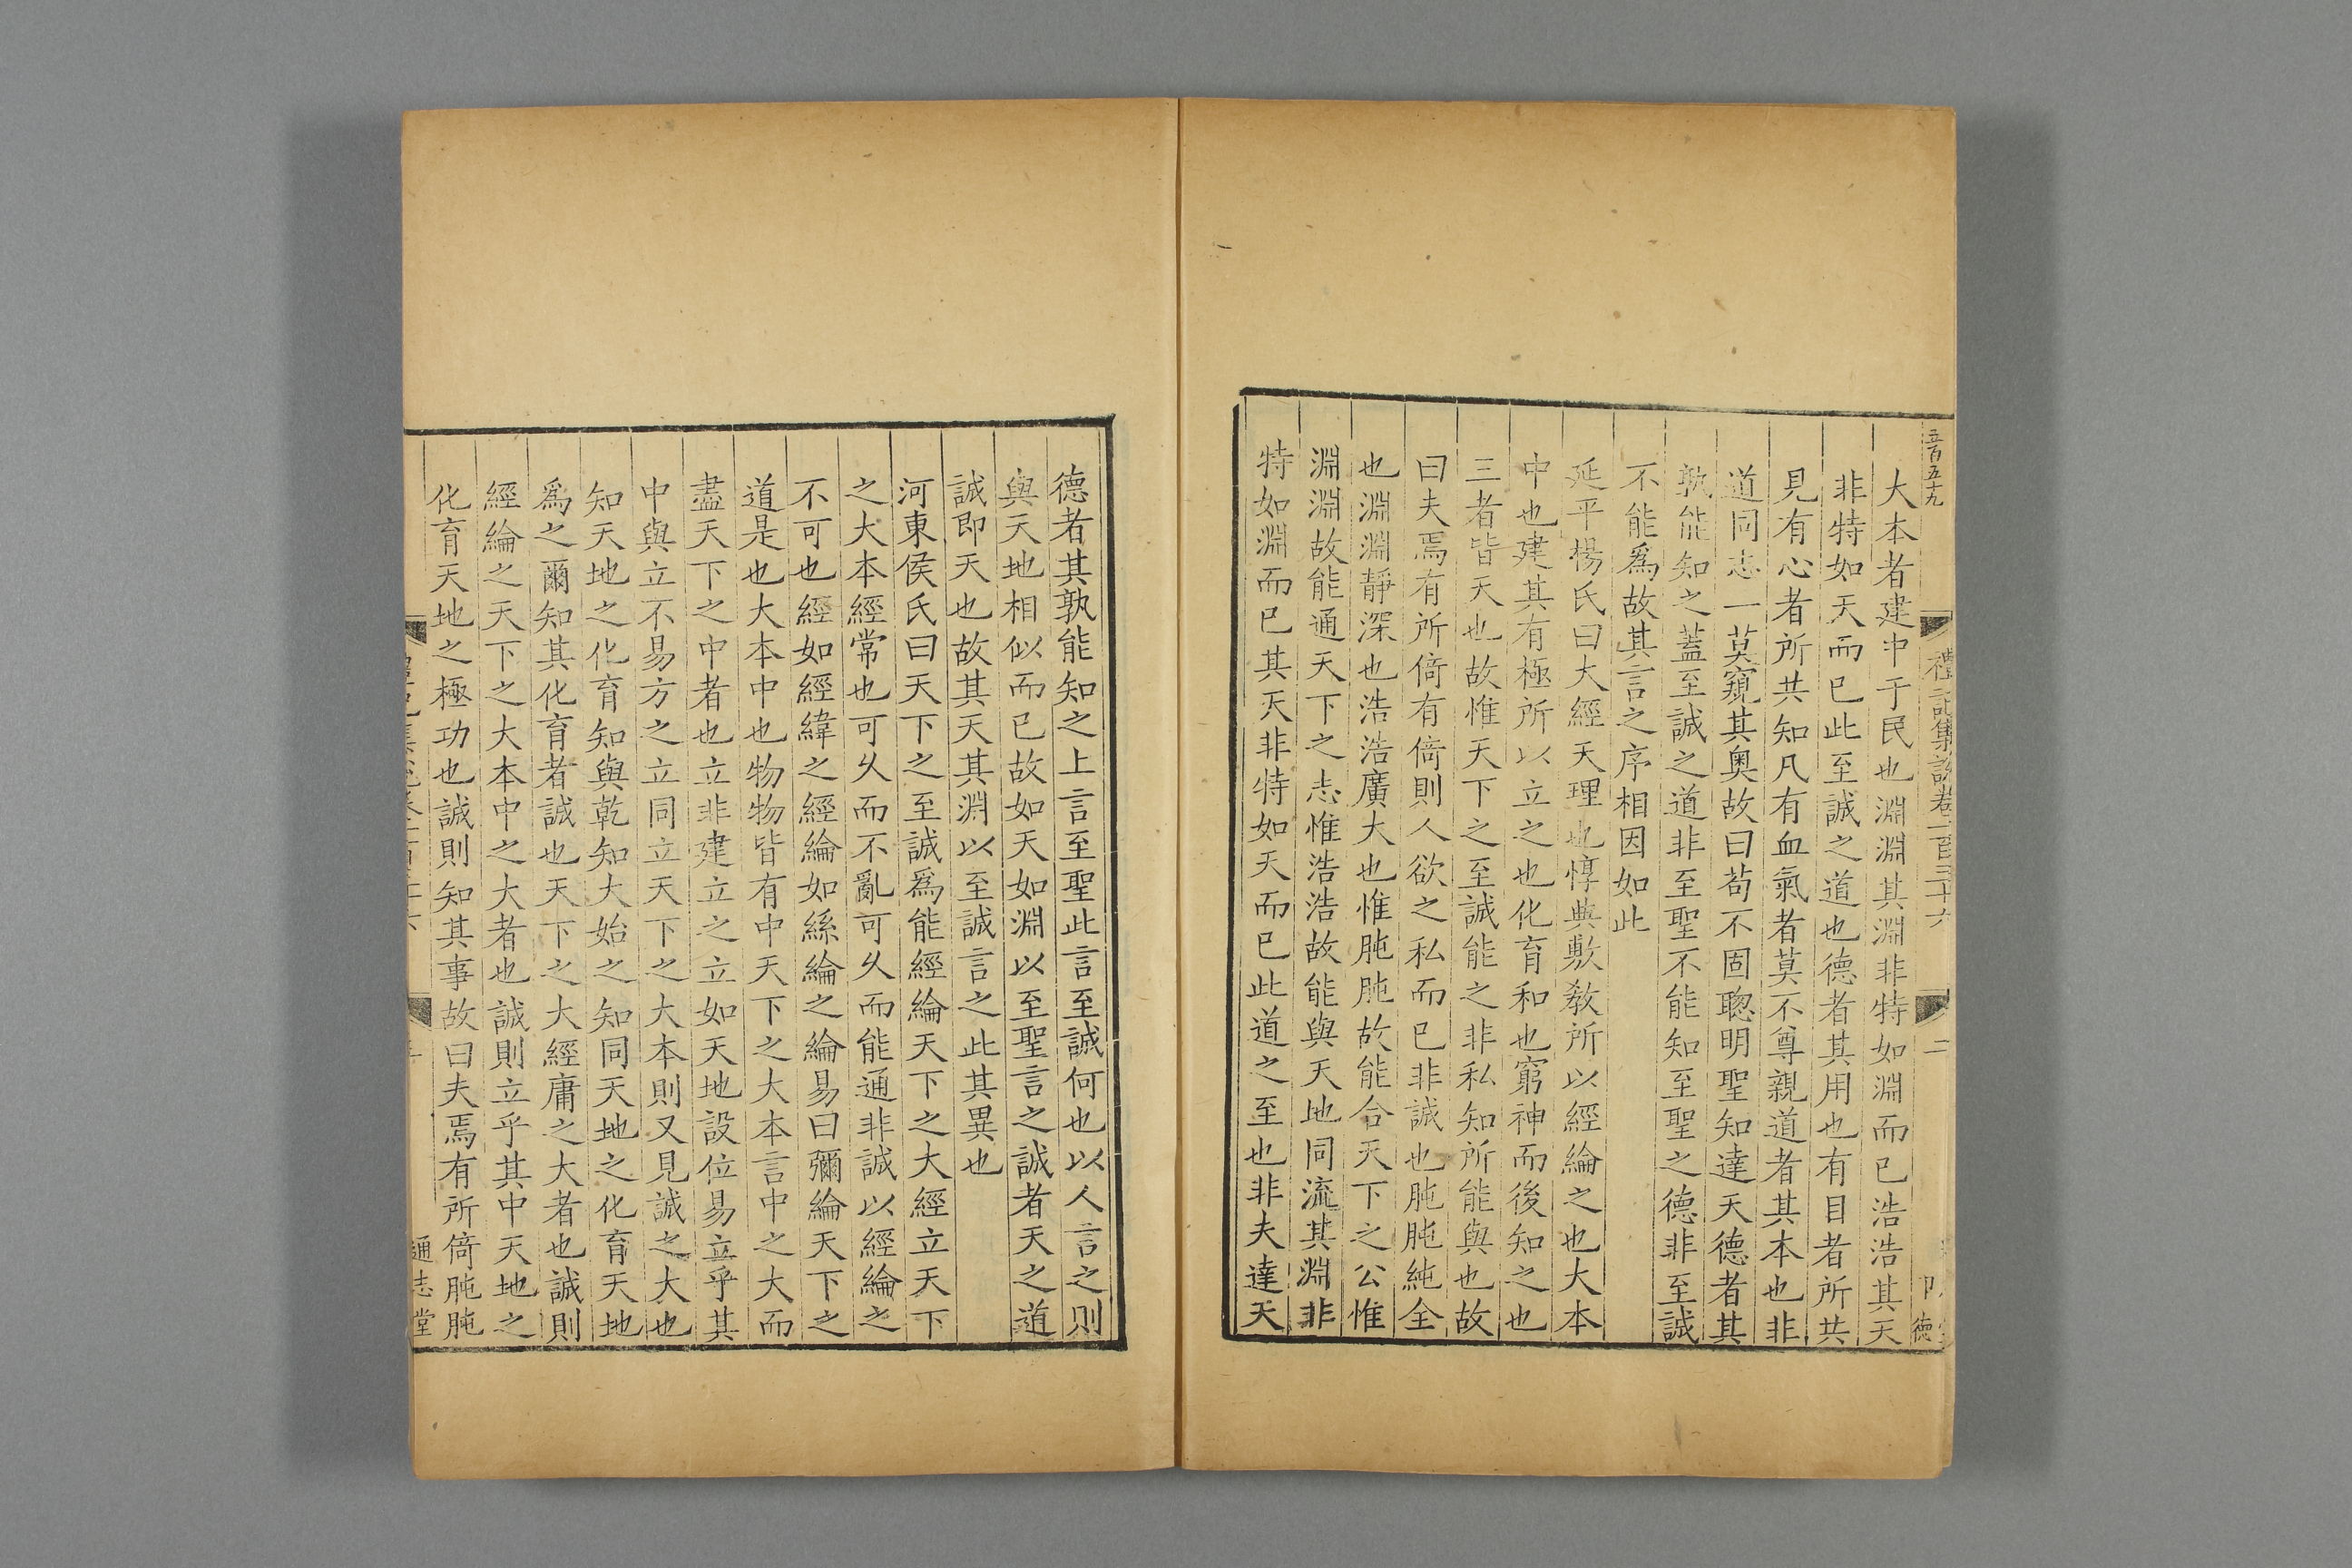 五百五十九
禮記集說卷一百三十六
二
大本者建中于民也淵淵其淵非特如淵而已浩浩其天
非特如天而已此至誠之道也德者其用也有目者所共
見有心者所共知凡有血氣者莫不尊親道者其本也非
道同志一莫窺其奧故曰苟不固聰明聖知達天德者其
孰能知之蓋至誠之道非至聖不能知至聖之德非至誠
不能爲故其言之序相因如此
延平楊氏曰大經天理也惇典敷敎所以經綸之也大本
中也建其有極所以立之也化育和也窮神而後知之也
三者皆天也故惟天下之至誠能之非私知所能與也故
曰夫焉有所倚有倚則人欲之私而已非誠也肫肫純全
也淵淵靜深也浩浩廣大也惟肫肫故能合天下之公惟
淵淵故能通天下之志惟浩浩故能與天地同流其淵非
特如淵而已其天非特如天而已此道之至也非夫達天
德者其孰能知之上言至聖此言至誠何也以人言之則
與天地相似而已故如天如淵以至聖言之誠者天之道
誠即天也故其天其淵以至誠言之此其異也
河東侯氏曰天下之至誠爲能經綸天下之大經立天下
之大本經常也可久而不亂可久而能通非誠以經綸之
不可也經如經緯之經綸如絲綸之綸易曰彌綸天下之
道是也大本中也物物皆有中天下之大本言中之大而
盡天下之中者也立非建立之立如天地設位易立乎其
中與立不易方之立同立天下之大本則又見誠之大也
知天地之化育知與乾知大始之知同天地之化育天地
爲之爾知其化育者誠也天下之大經庸之大者也誠則
經綸之天下之大本中之大者也誠則立乎其中天地之
化育天地之極功也誠則知其事故曰夫焉有所倚肫肫
通志堂